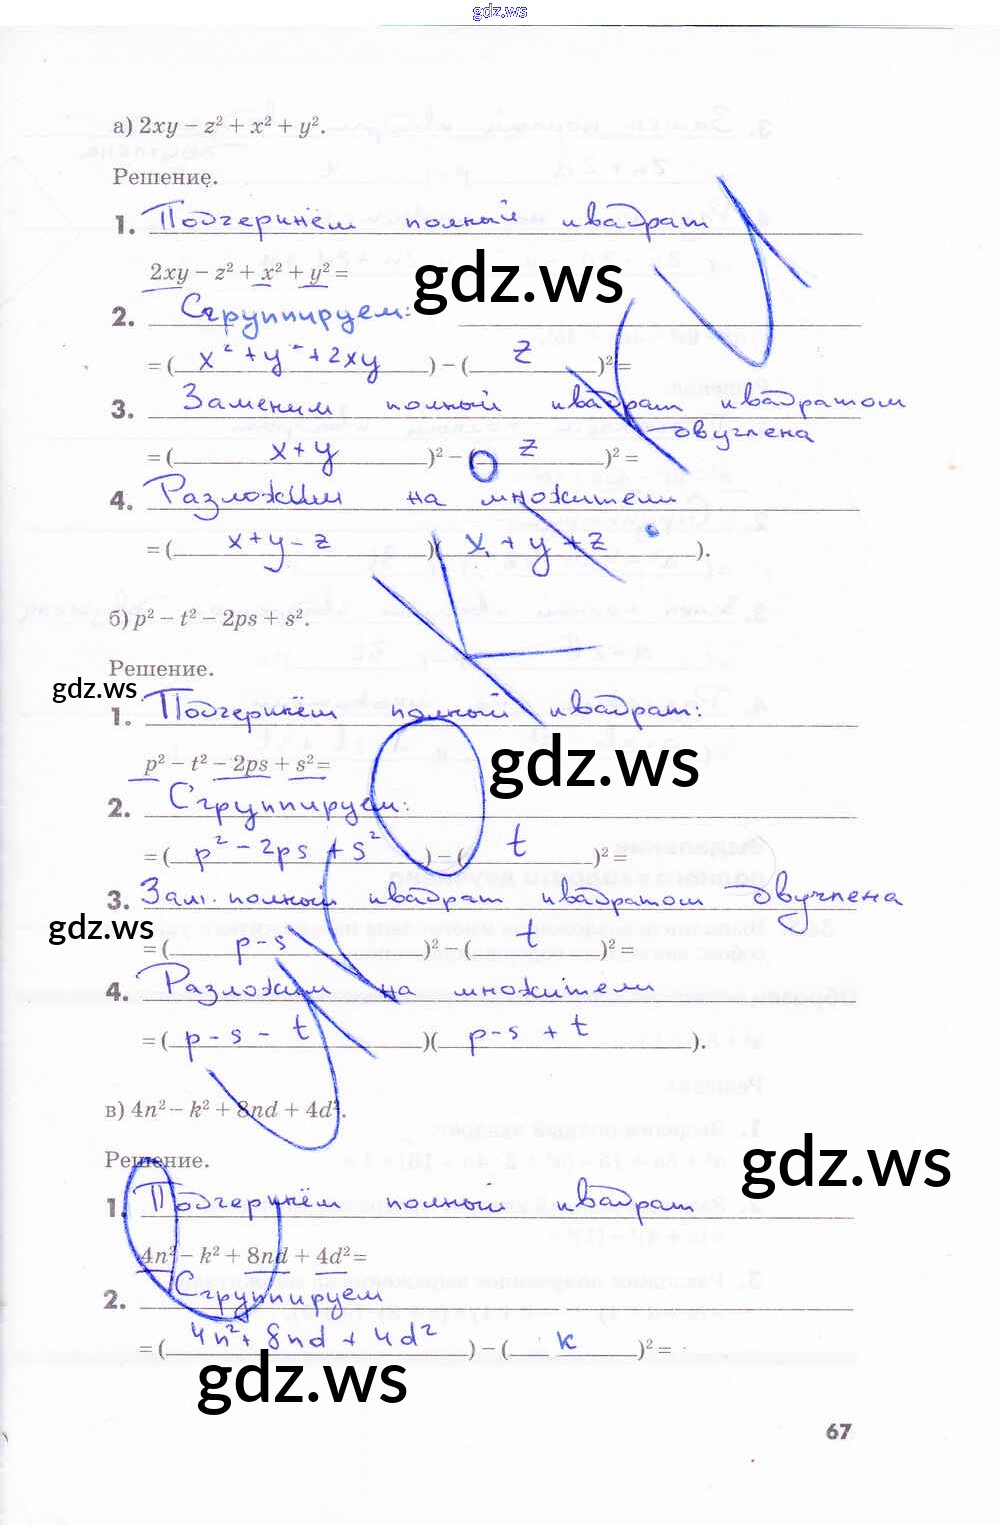 gdz.ws
а) 2xy – z² + x² + y².
Решение.
1. Подчеркнём полный квадрат
2xy – z² + x² + y² =
gdz.ws
2. Сгруппируем:
= ( x² + y² + 2xy ) – ( z )² =
3. Заменим полный квадрат квадратом
двучлена
= ( x+y )² – ( z )² =
4. Разложим на множители
= ( x+y–z )( x+y+z ).
б) p² – t² – 2ps + s².
Решение.
gdz.ws
1. Подчеркнём полный квадрат:
p² – t² – 2ps + s² =
gdz.ws
2. Сгруппируем:
= ( p² – 2ps + s² ) – ( t )² =
3. Зам. полный квадрат квадратом двучлена
gdz.ws
= ( p–s )² – ( t )² =
4. Разложим на множители
= ( p–s–t )( p–s+t ).
в) 4n² – k² + 8nd + 4d².
Решение.
gdz.ws
1. Подчеркнём полный квадрат
4n² – k² + 8nd + 4d² =
2. Сгруппируем
= ( 4n² + 8nd + 4d² ) – ( k )² =
gdz.ws
67